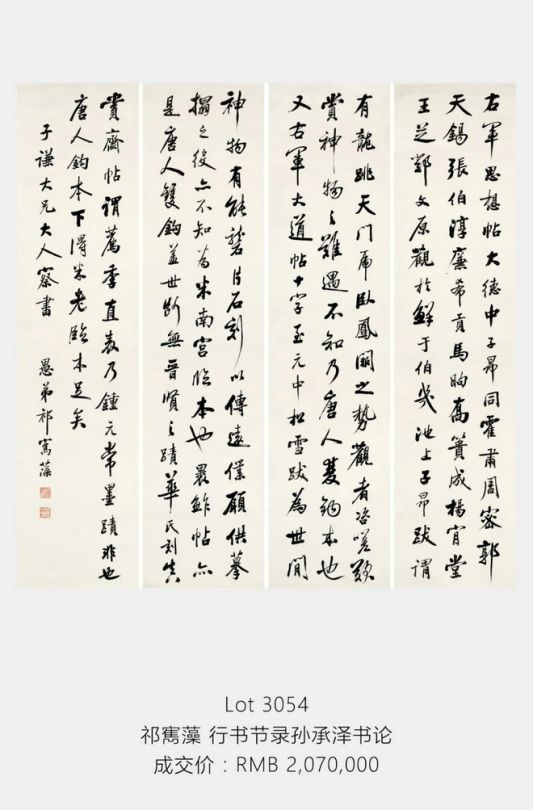 右军思想帖大德中子昂同霍肃周密郭
天锡張伯淳廉希貢馬昫高簣成楊肯堂
王芝鄧文原觀於鮮于伯幾池上子昂跋謂
有龍跳天门虎卧鳳閣之勢觀者咨嗟歎
賞神物之難遇不知乃唐人雙鈎本也
又右軍大道帖十字至元中松雪跋為世間
神物有能礱片石刻以傳遠僕願供摹
搨之役亦不知為米南宫临本也最鮓帖亦
是唐人雙鈎蓋世斷無晉賢之蹟華氏刻真
賞齋帖謂薦季直表乃鍾元常墨蹟非也
唐人鈎本下得米老臨本足矣
子谦大兄大人察書 愚弟祁寯藻
Lot 3054
祁寯藻 行书节录孙承泽书论
成交价：RMB 2,070,000